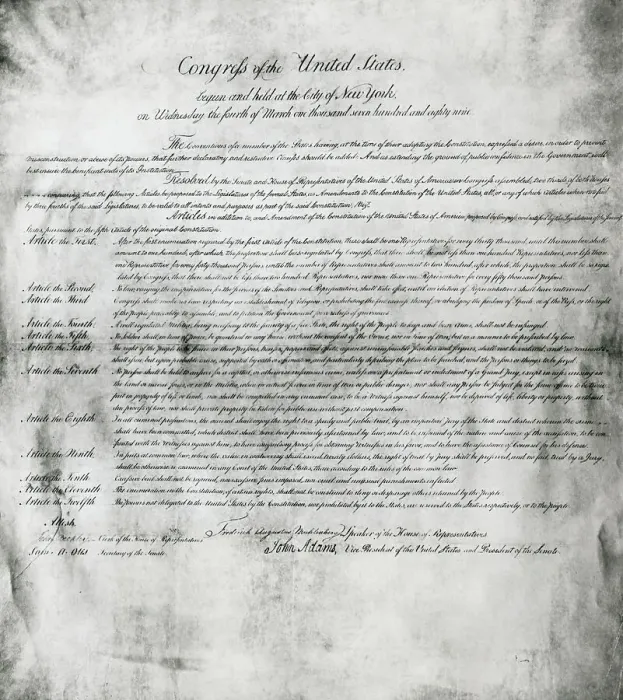 Congress of the United States.
begun and held at the City of New York, on
on Wednesday the fourth of March one thousand seven hundred and eighty nine
The Conventions of a number of the States having, at the time of their adopting the Constitution, expressed a desire, in order to prevent
misconstruction or abuse of its powers, that further declaratory and restrictive Clauses should be added: And as extending the ground of public confidence in the Government, will
best ensure the beneficent ends of its Institution
Resolved by the Senate and House of Representatives of the United States of America in Congress assembled, two thirds of both Houses
concurring that the following Articles be proposed to the Legislatures of the several States, as Amendments to the Constitution of the United States, all, or any of which Articles, when ratified
by three fourths of the said Legislatures, to be valid to all intents and purposes, as part of the said Constitution; Viz.
Articles in addition to, and Amendment of the Constitution of the United States of America, proposed by Congress, and ratified by the Legislatures of the several
States, pursuant to the fifth Article of the original Constitution.
Article the First. After the first enumeration required by the first Article of the Constitution, there shall be one Representative for every thirty thousand, until the number shall
amount to one hundred, after which, the proportion shall be so regulated by Congress, that there shall be not less than one hundred Representatives, nor less than
one Representative for every forty thousand persons, until the number of Representatives shall amount to two hundred, after which the proportion shall be so regulated
by Congress, that there shall not be less than two hundred Representatives, nor more than one Representative for every fifty thousand persons.
Article the Second. No law, varying the compensation for the services of the Senators and Representatives, shall take effect, until an election of Representatives shall have intervened.
Article the Third. Congress shall make no law respecting an establishment of religion, or prohibiting the free exercise thereof; or abridging the freedom of Speech, or of the Press, or the right
of the people peaceably to assemble, and to petition the Government for a redress of grievances
Article the Fourth. A well regulated Militia, being necessary to the security of a free State, the right of the people to keep and bear Arms, shall not be infringed
Article the Fifth. No Soldier shall, in time of peace, be quartered in any house, without the consent of the Owner, nor in time of war, but in a manner to be prescribed by law.
Article the Sixth. The right of the people to be secure in their persons, houses, papers, and effects, against unreasonable searches and seizures, shall not be violated, and no warrants
shall issue, but upon probable cause, supported by oath or affirmation, and particularly describing the place to be searched, and the persons or things to be seized.
Article the Seventh. No person shall be held to answer for a capital, or otherwise infamous crime, unless on a presentment or indictment of a Grand Jury, except in cases arising in
the land or naval forces, or in the Militia, when in actual service in time of war or public danger; nor shall any person be subject for the same offence to be twice
put in jeopardy of life or limb, nor shall be compelled in any criminal case, to be a witness against himself, nor be deprived of life, liberty, or property, without
due process of law; nor shall private property be taken for public use without just compensation.
Article the Eighth. In all criminal prosecutions, the accused shall enjoy the right to a speedy and public trial, by an impartial Jury of the State and district wherein the crime
shall have been committed, which district shall have been previously ascertained by law, and to be informed of the nature and cause of the accusation; to be con
fronted with the witnesses against him; to have compulsory process for obtaining witnesses in his favor, and to have the assistance of Counsel for his defence.
Article the Ninth. In suits at common law, where the value in controversy shall exceed twenty dollars, the right of trial by jury shall be preserved, and no fact, tried by a Jury,
shall be otherwise re-examined in any Court of the United States, than according to the rules of the common law
Article the Tenth. Excessive bail shall not be required, nor excessive fines imposed, nor cruel and unusual punishments inflicted
Article the Eleventh. The enumeration in the Constitution, of certain rights, shall not be construed to deny or disparage others retained by the people
Article the Twelfth. The powers not delegated to the United States by the Constitution, nor prohibited by it to the States, are reserved to the States respectively, or to the people
Attest,
Frederick Augustus Muhlenberg Speaker of the House of Representatives
John Beckley, Clerk of the House of Representatives
John Adams, Vice President of the United States and President of the Senate.
Sam. A. Otis Secretary of the Senate.